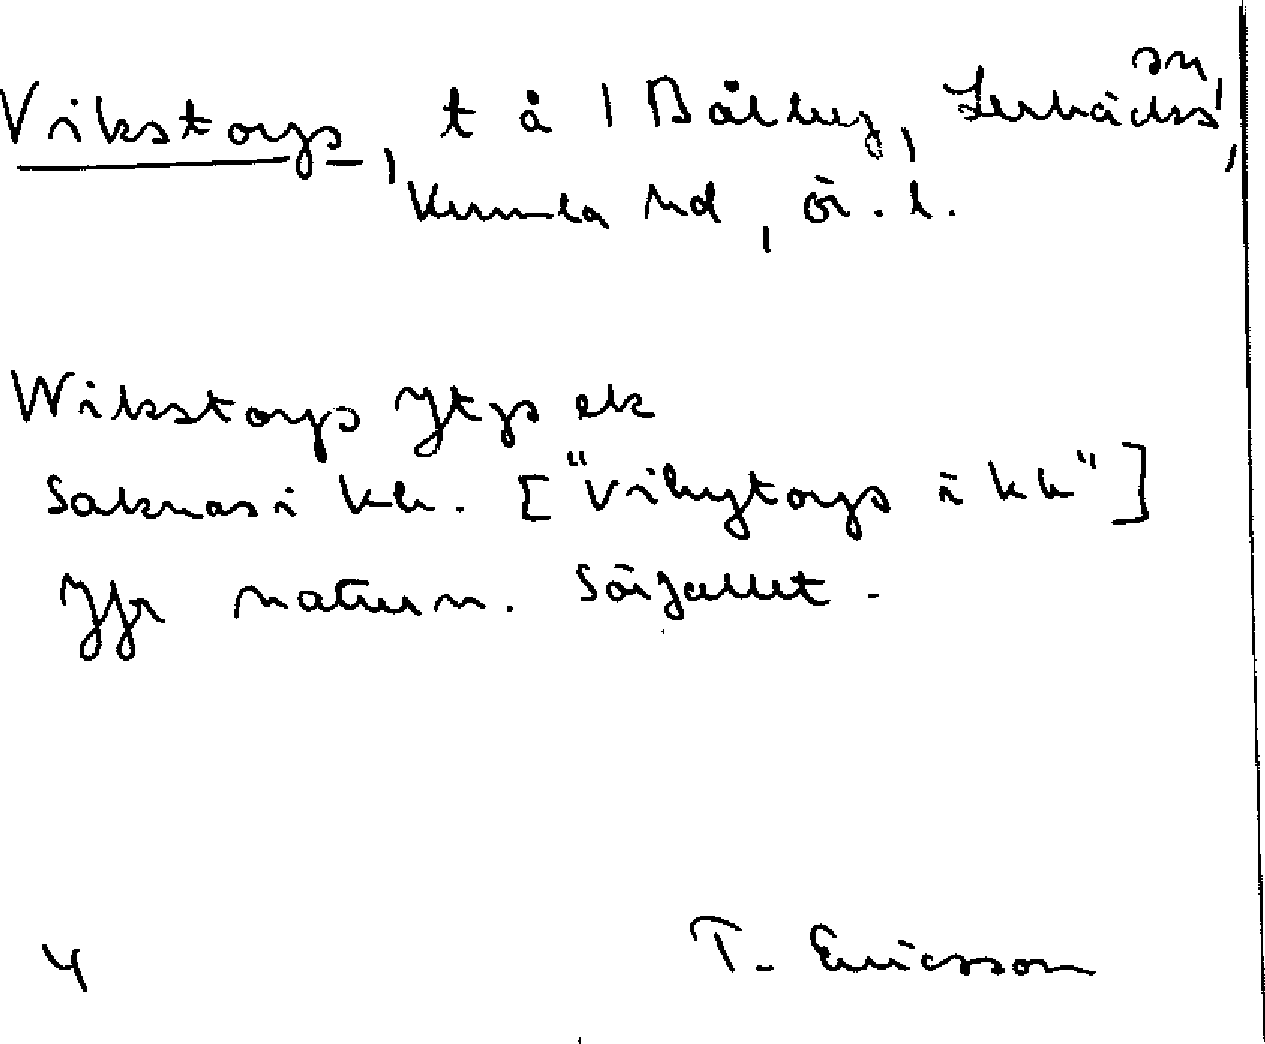 Vikstorp, t å 1 Bålby, Lerbäcks sn,
Kumla hd, ör. l.
Wikstorp Jtp ek
Saknas i kk. ["Vibytorp i kk"]
Jfr naturn. Sörfallet.
4 T. Ericsson